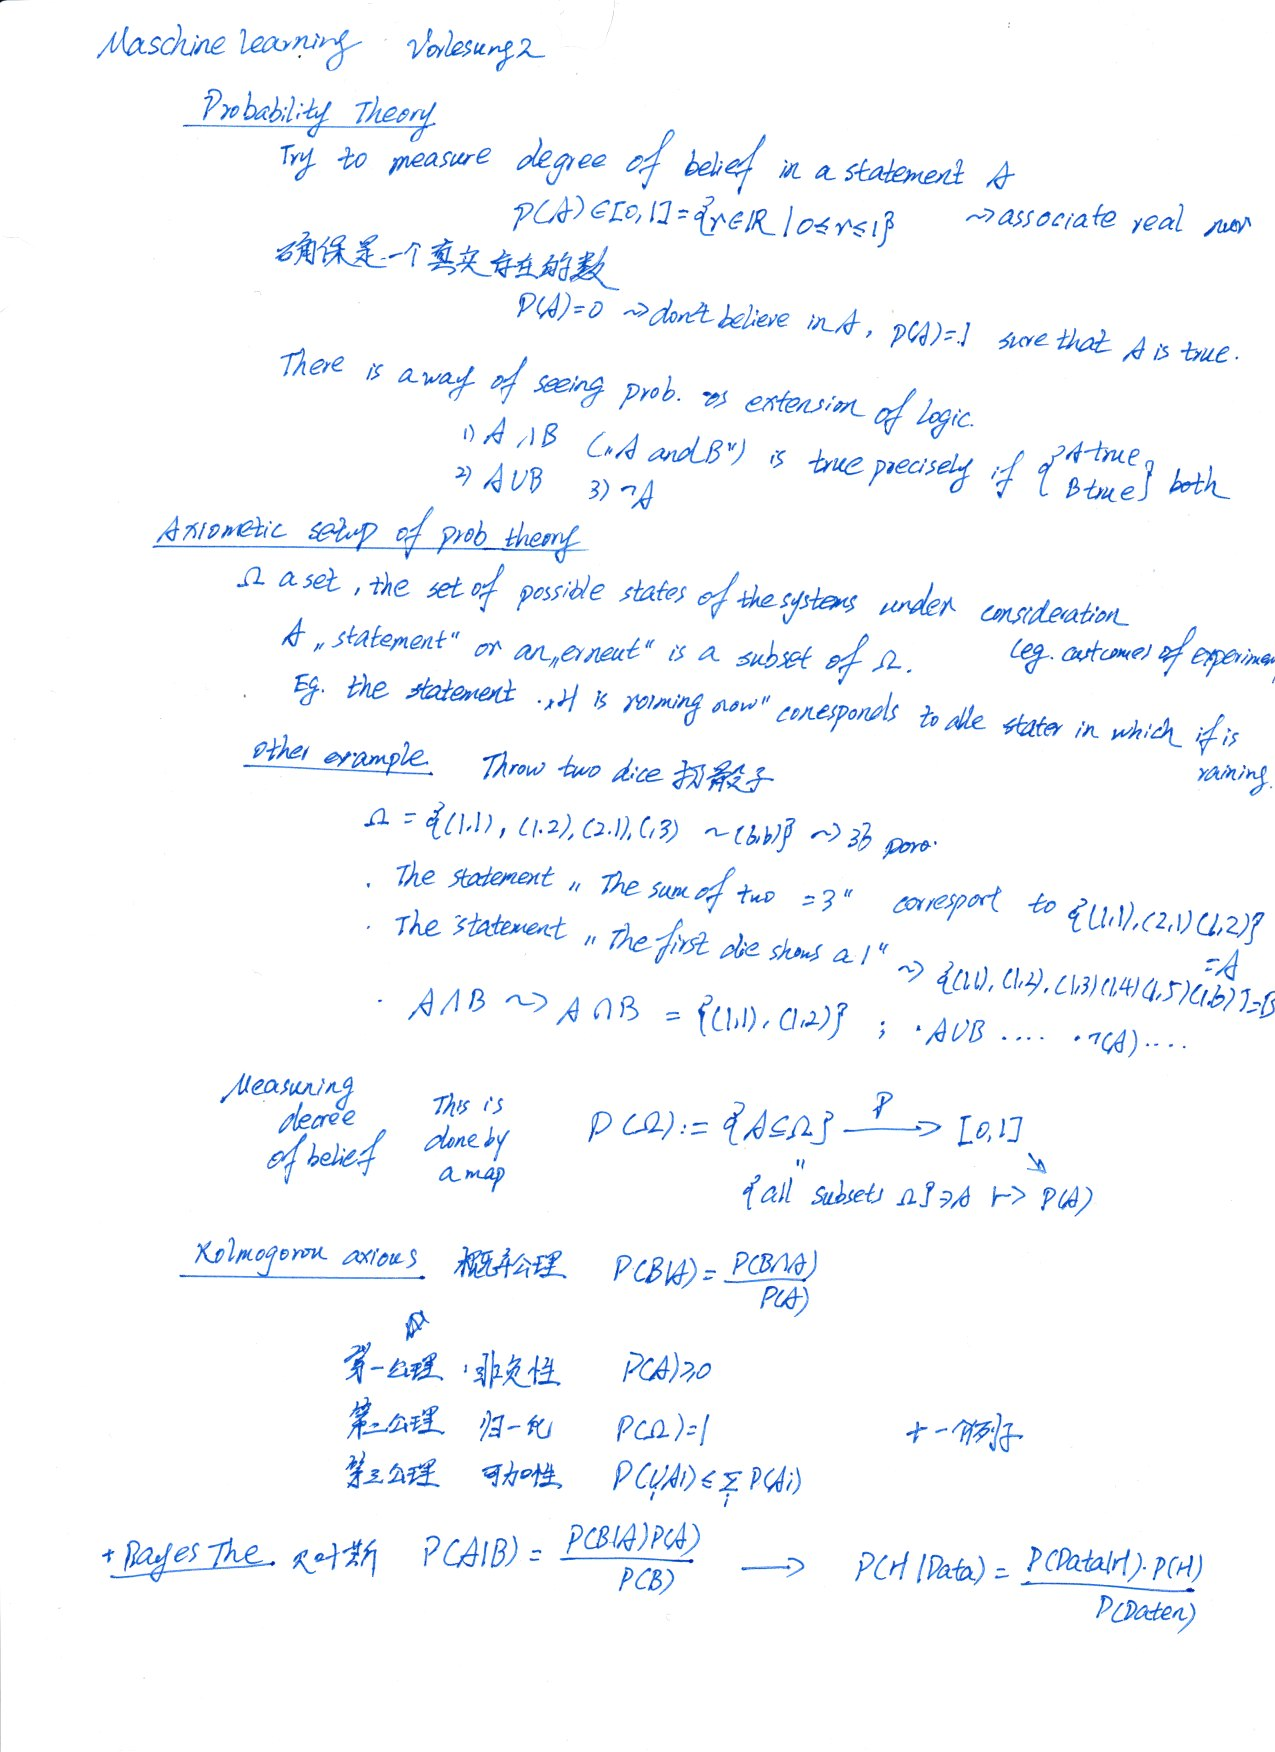 Maschine learning Vorlesung 2
Probability Theory
Try to measure degree of belief in a statement A
P(A)∈[0,1]={r∈ℝ | 0≤r≤1} ~> associate real
确保是一个真实存在的数
P(A)=0 ~> don't believe in A, p(A)=1 sure that A is true.
There is a way of seeing prob. as extension of logic.
1) A ∧ B („A and B") is true precisely if {A true, B true} both
2) A∪B 3) ¬A
Axiometic setup of prob theory
Ω a set, the set of possible states of the systems under consideration
(eg. outcomes of experimen
A „statement" or an „erneut" is a subset of Ω.
Eg. the statement „It is raining now" conesponds to alle stater in which if is
raining.
Other example. Throw two dice 扔骰子
Ω = {(1.1), (1.2), (2.1), (,3) ~ (6,6)} ~> 36
. The statement „The sum of two =3" corresport to {(1,1),(2,1)(1,2)}
=A
. The statement „The first die shows a 1" ~> {(1,1), (1,2), (1,3)(1,4)(1,5)(1,6)}=B
. A∧B ~> A∩B = {(1,1), (1,2)} ; · A∪B .... · ¬(A)....
Measuring
decree
of belief
This is
done by
a map
P(Ω):= {A⊆Ω} —P→ [0,1]
"
{all subsets Ω}∋A ↦ P(A)
Kolmogorov axious 概率公理 P(B|A)= P(B∩A)/P(A)
第一公理 · 非负性 P(A)≥0
第二公理 归一化 P(Ω)=1 + 一个例子
第三公理 可加性 P(∪Ai) ≤ Σ P(Ai)
i i
+ Bayes The. 贝叶斯 P(A|B) = P(B|A)P(A)/P(B) → P(H|Data) = P(Data|H)·P(H)/P(Daten)